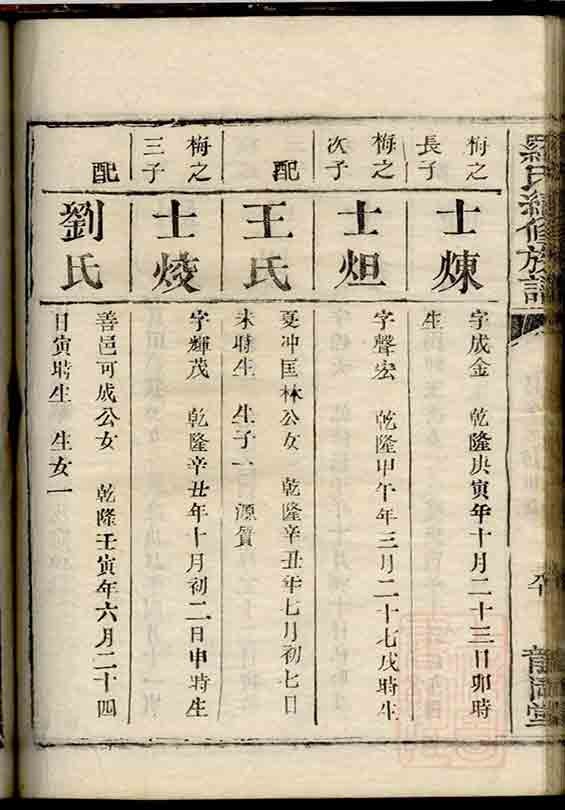 羅氏續修族譜
梅之
長子
士煉
字成金 乾隆庚寅年十月二十三日卯時
生
梅之
次子
士烜
字聲宏 乾隆甲午年三月二十七戌時生
配
王氏
夏冲匡林公女 乾隆辛丑年七月初七日
未時生 生子一 源質
梅之
三子
士焌
字輝茂 乾隆辛丑年十月初二日申時生
配
劉氏
善邑可成公女 乾隆壬寅年六月二十四
日寅時生 生女一